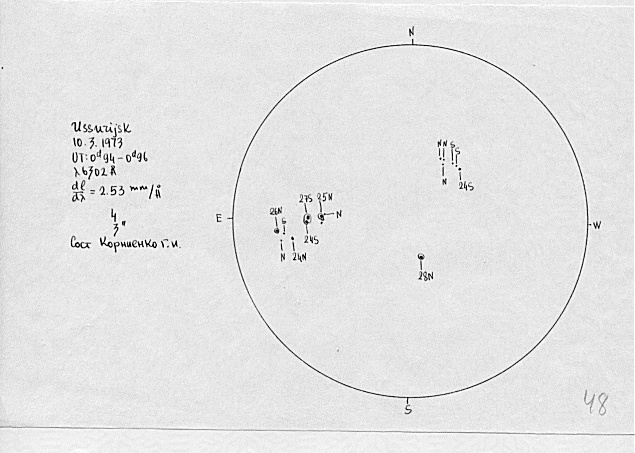 Ussurijsk
10.3.1973
UT: 0ᵈ94 – 0ᵈ96
λ 6302 Å
dl/dλ = 2.53 mm/Å
4
3"
Сост Корниенко Г.И.
N
N N S S
N
24S
26N
S
27S 25N
N
E
W
24S
N 24N
28N
S
48